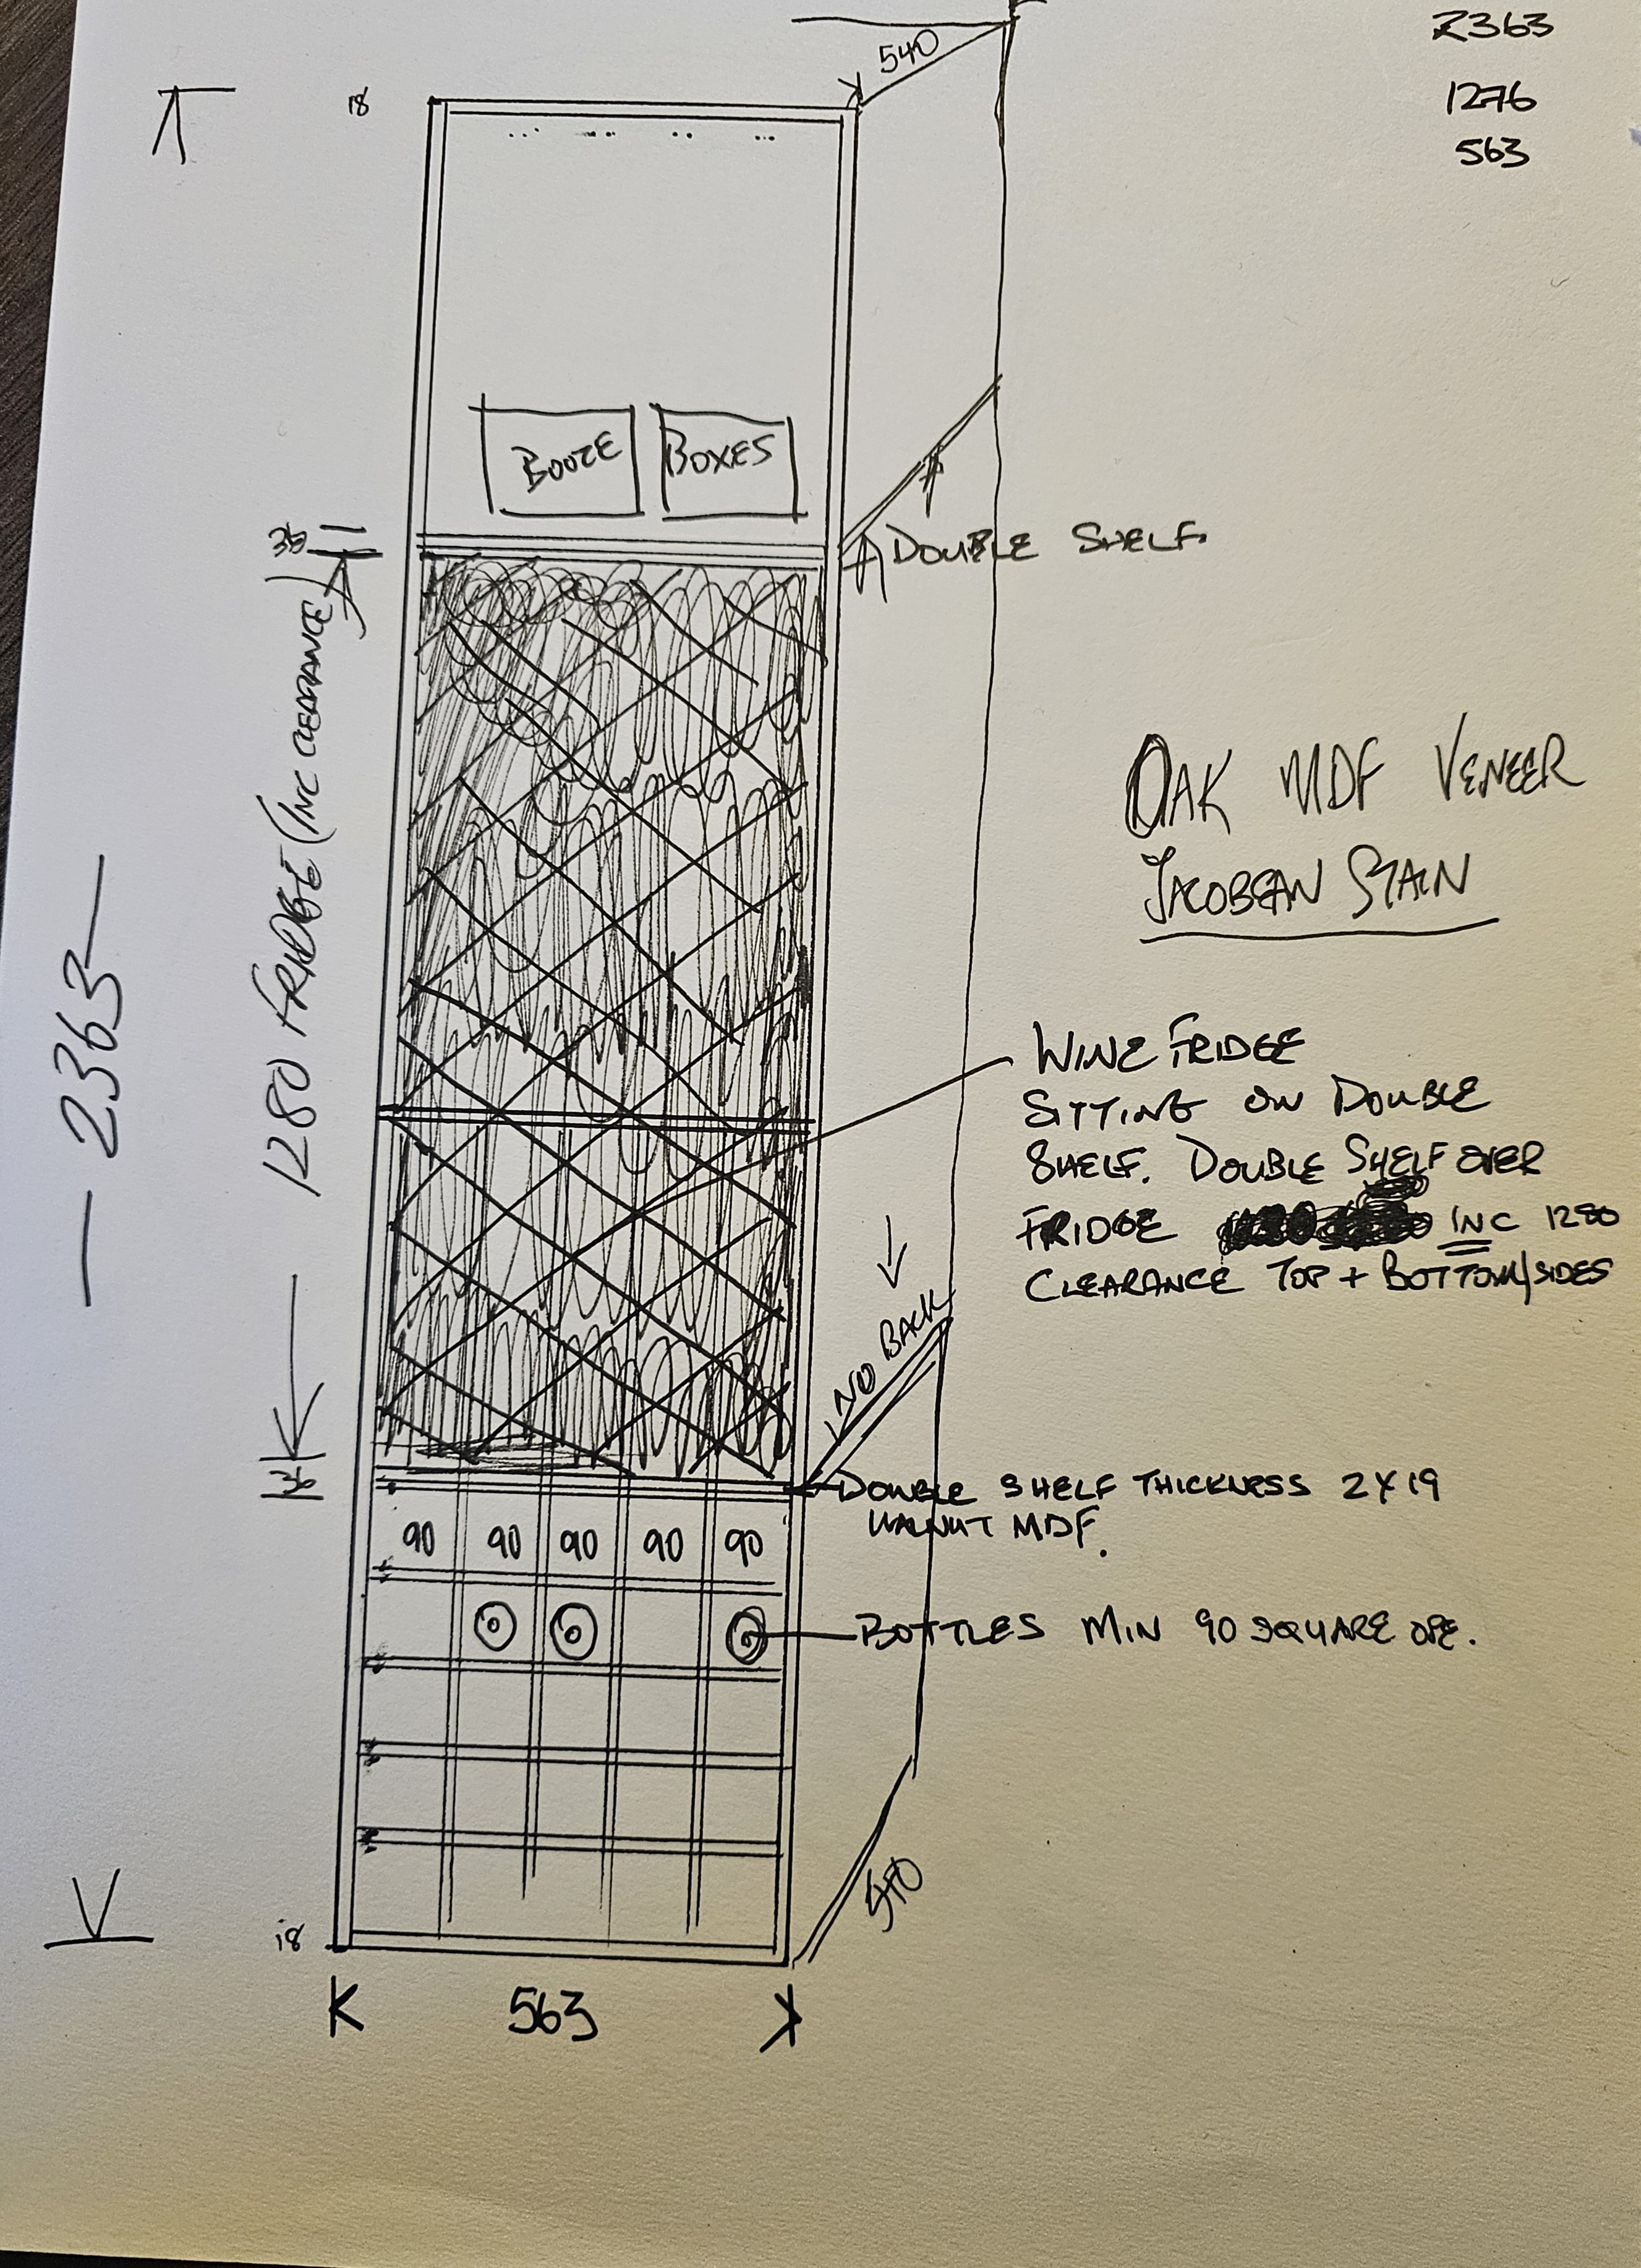 2363
1276
563
540
18
BOOZE
BOXES
DOUBLE SHELF.
1280 FRIDGE (INC CLEARANCE)
2363
OAK MDF VENEER
JACOBEAN STAIN
WINE FRIDGE
SITTING ON DOUBLE
SHELF. DOUBLE SHELF OVER
FRIDGE INC 1280
CLEARANCE TOP + BOTTOM/SIDES
NO BACK
DOUBLE SHELF THICKNESS 2X19
WALNUT MDF.
90 90 90 90 90
BOTTLES MIN 90 SQUARE OPE.
540
18
563